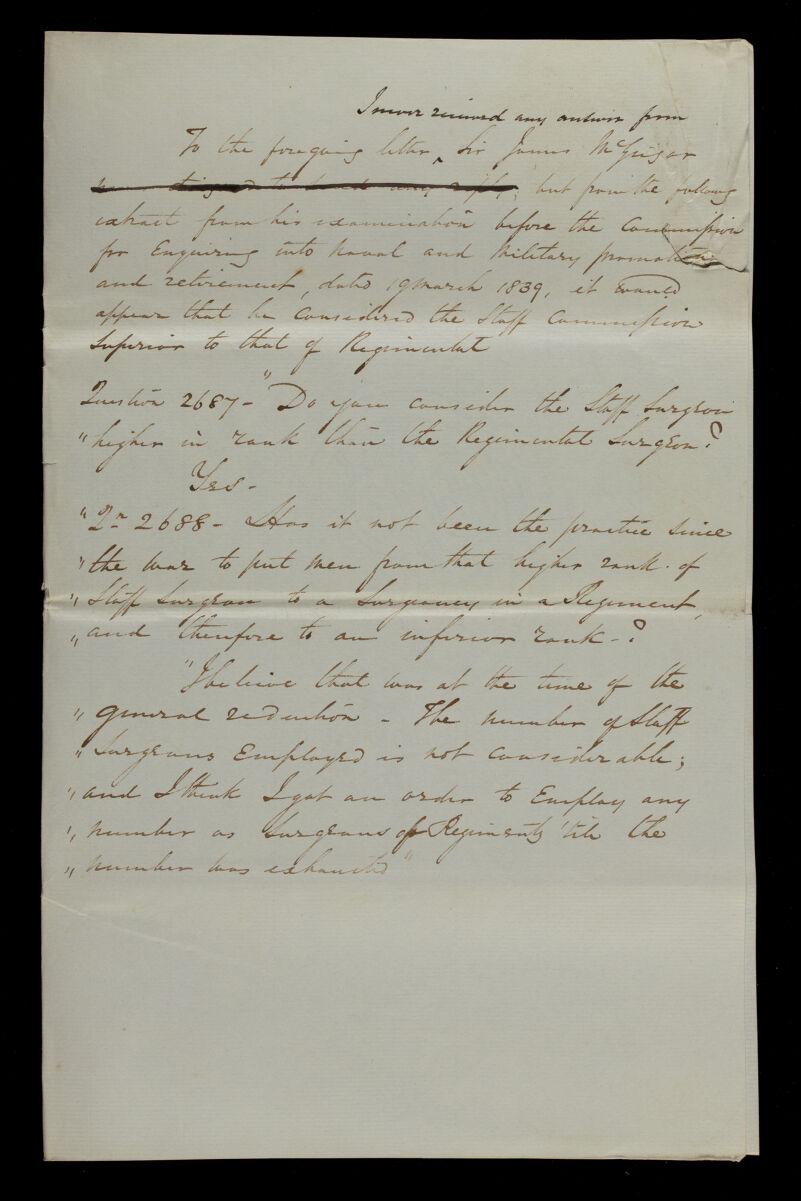 I never received any answer from
To the foregoing letter ‸ Sir James McGrigor
never deigned to send any reply; but from the following
extract from his examination before the Commission
for Enquiring into Naval and Military promotion
and retirement, dated 19 March 1839, it would
appear that he considered the Staff Commission
Superior to that of Regimental
Question 2687 - "Do you consider the Staff Surgeon
"higher in rank than the Regimental Surgeon?
Yes -
"Qn 2688 - Has it not been the practice since
"the war to put men from that higher rank of
"Staff Surgeon to a Surgeoncy in a Regiment,
"and therefore to an inferior rank - ?
"I believe that was at the time of the
"general reduction - The number of Staff
"Surgeons Employed is not considerable;
"and I think I got an order to Employ any
"number as Surgeons of Regiments 'till the
"number was exhausted"